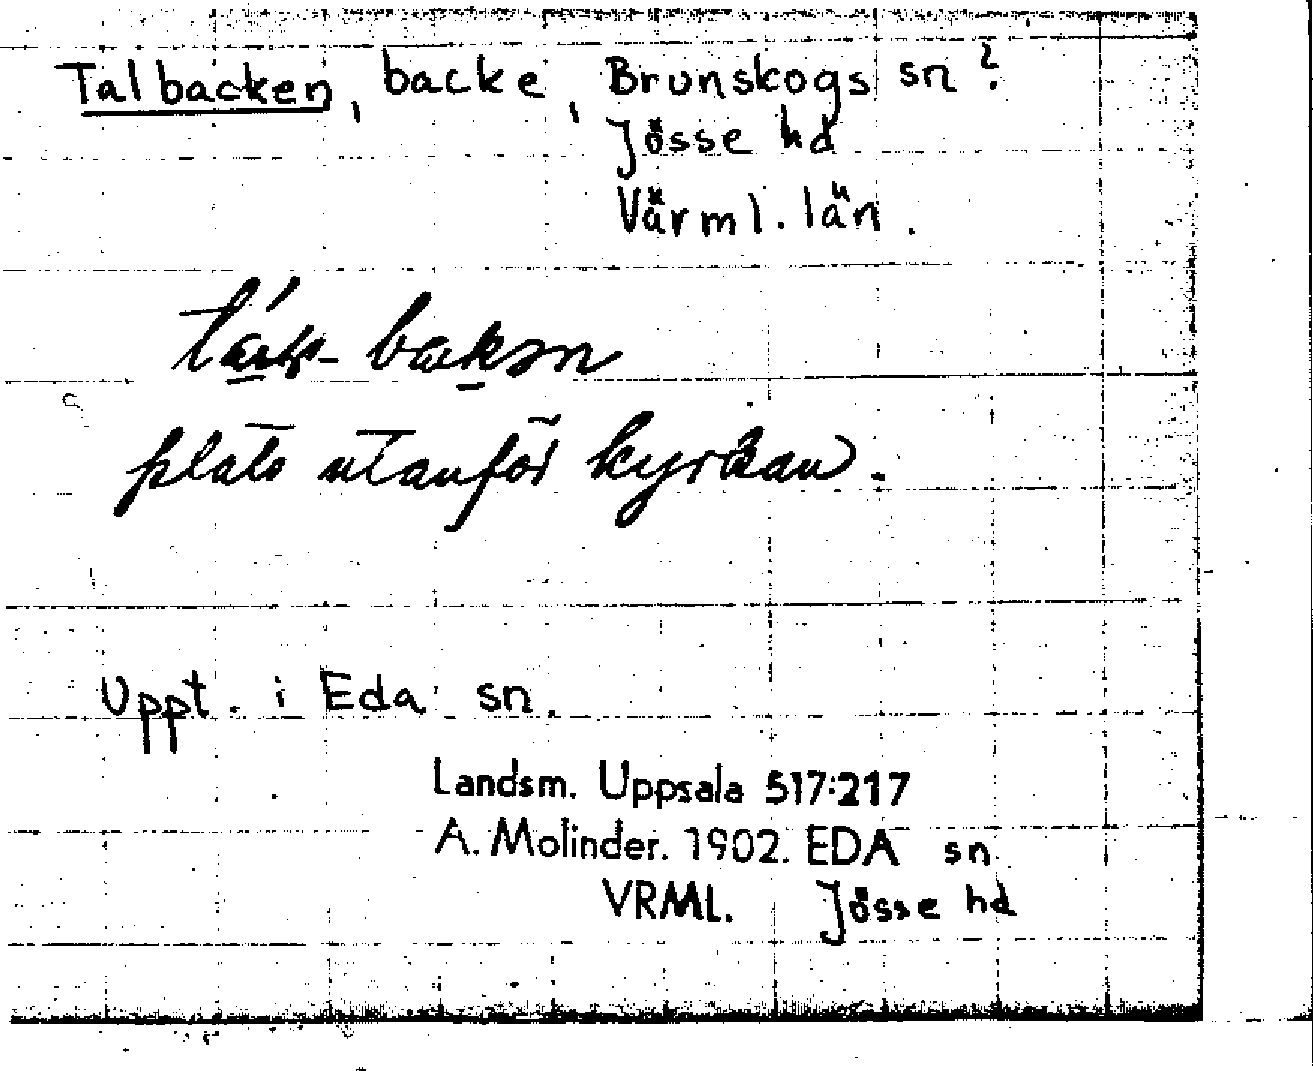 Talbacken, backe, Brunskogs sn?
Jösse hd
Värml. län.
plats utanför kyrkan.
Uppt. i Eda sn.
Landsm. Uppsala 517:217
A. Molinder. 1902. EDA sn
VRML. Jösse hd